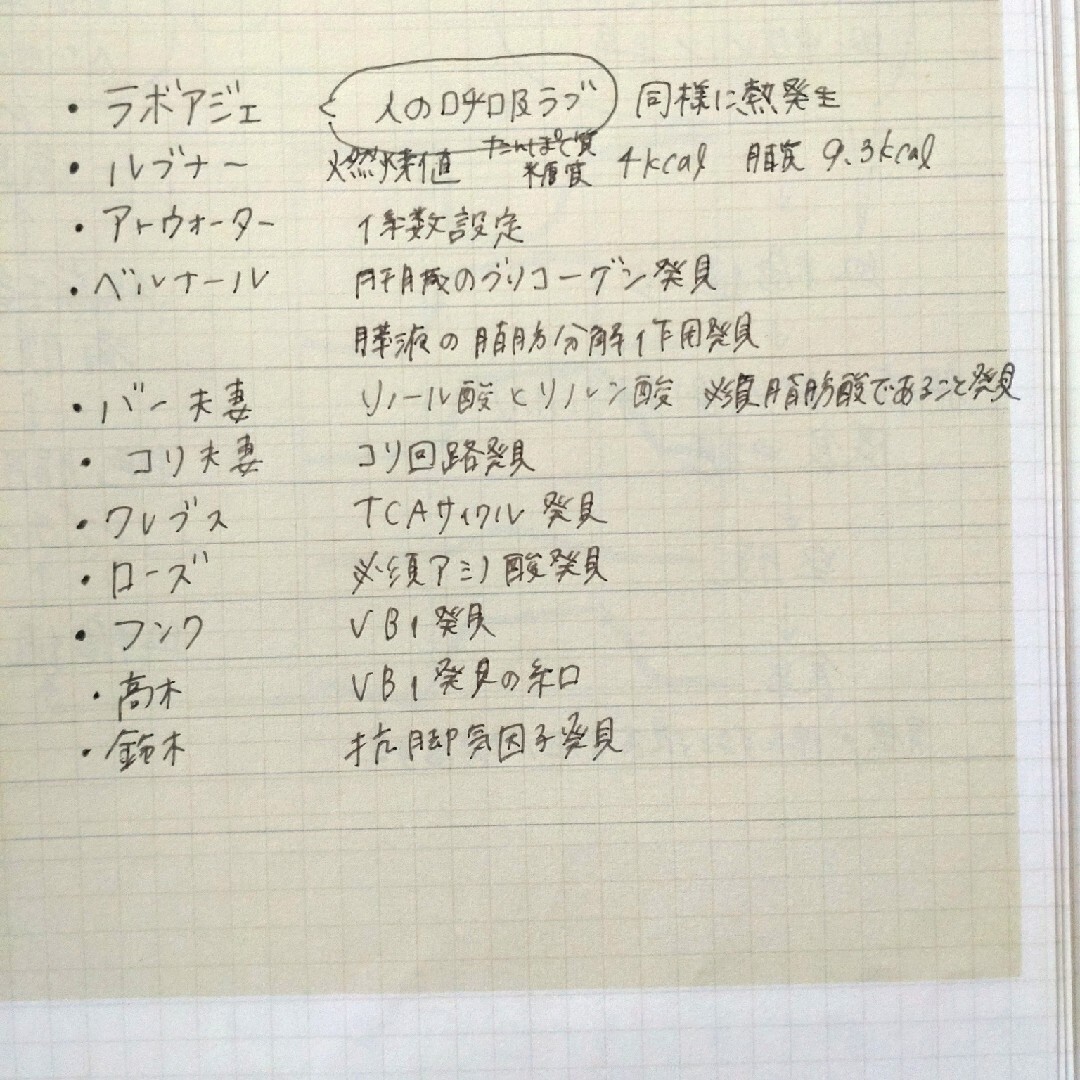 ・ラボアジェ 人の呼吸ラブ 同様に熱発生
・ルブナー 燃焼値 たんぱく質 糖質 4kcal 脂質 9.3kcal
・アトウォーター 係数設定
・ベルナール 肝臓のグリコーゲン発見
膵液の脂肪分解作用発見
・バー夫妻 リノール酸とリノレン酸 必須脂肪酸であること発見
・コリ夫妻 コリ回路発見
・クレブス TCAサイクル発見
・ローズ 必須アミノ酸発見
・フンク VB1発見
・高木 VB1発見の糸口
・鈴木 抗脚気因子発見